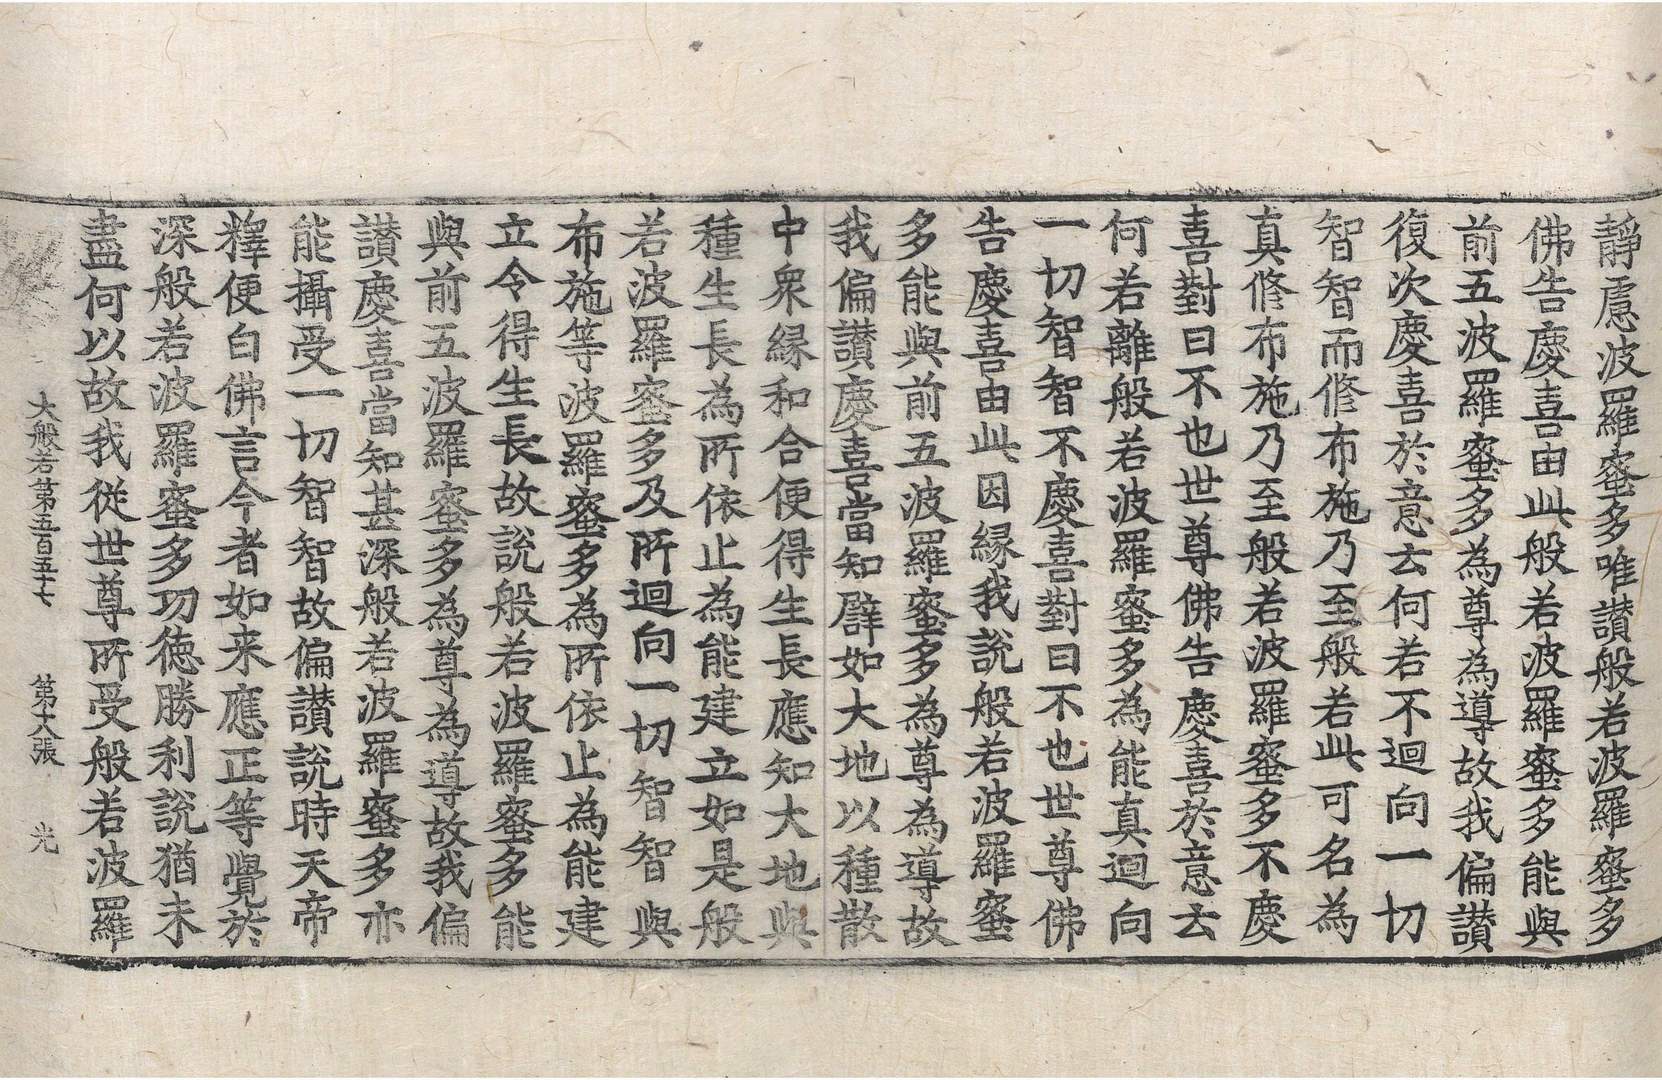 靜慮波羅蜜多唯讃般若波羅蜜多
佛告慶喜由此般若波羅蜜多能與
前五波羅蜜多為尊為導故我偏讃
復次慶喜於意云何若不迴向一切
智智而修布施乃至般若此可名為
真修布施乃至般若波羅蜜多不慶
喜對曰不也世尊佛告慶喜於意云
何若離般若波羅蜜多為能真迴向
一切智智不慶喜對曰不也世尊佛
告慶喜由此因緣我說般若波羅蜜
多能與前五波羅蜜多為尊為導故
我偏讃慶喜當知譬如大地以種散
中衆緣和合便得生長應知大地與
種生長為所依止為能建立如是般
若波羅蜜多及所迴向一切智智與
布施等波羅蜜多為所依止為能建
立令得生長故說般若波羅蜜多能
與前五波羅蜜多為尊為導故我偏
讃慶喜當知甚深般若波羅蜜多亦
能攝受一切智智故偏讃說時天帝
釋便白佛言今者如来應正等覺於
深般若波羅蜜多功德勝利說猶未
盡何以故我從世尊所受般若波羅
大般若第五百五十七　第六張　光